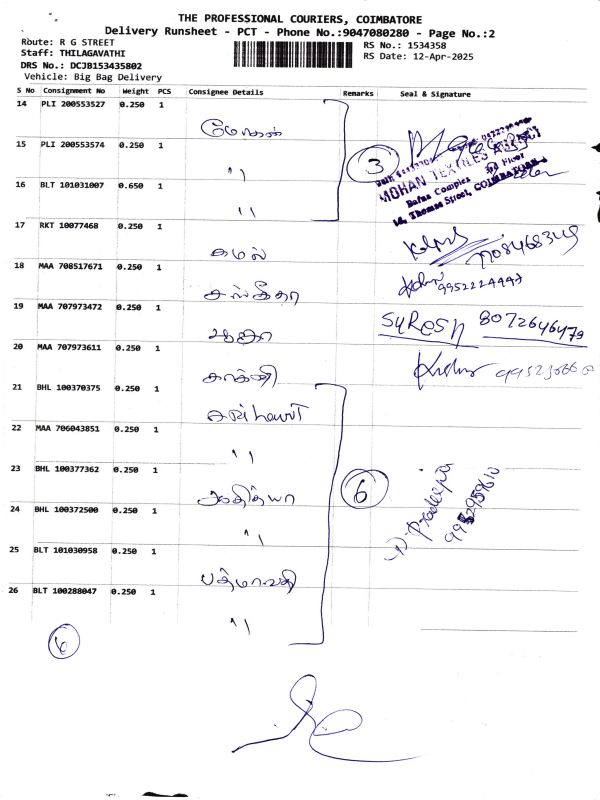 THE PROFESSIONAL COURIERS, COIMBATORE
Delivery Runsheet - PCT - Phone No.:9047080280 - Page No.:2
Route: R G STREET
RS No.: 1534358
Staff: THILAGAVATHI
RS Date: 12-Apr-2025
DRS No.: DCJB153435802
Vehicle: Big Bag Delivery
S No Consignment No Weight PCS Consignee Details Remarks Seal & Signature
14 PLI 200553527 0.250 1
மோகன்
15 PLI 200553574 0.250 1
"
3
MOHAN TEXTILES
Bafna Complex Floor
16, Thomas Street, COIMBATORE
16 BLT 101031007 0.650 1
"
17 RKT 10077468 0.250 1
கமல்
18 MAA 708517671 0.250 1
சங்கீதா
19 MAA 707973472 0.250 1
SURESH 8072646479
20 MAA 707973611 0.250 1
21 BHL 100370375 0.250 1
22 MAA 706043851 0.250 1
"
23 BHL 100377362 0.250 1
ஆதித்யா
6
24 BHL 100372500 0.250 1
"
25 BLT 101030958 0.250 1
பத்மாவதி
26 BLT 100288047 0.250 1
"
6